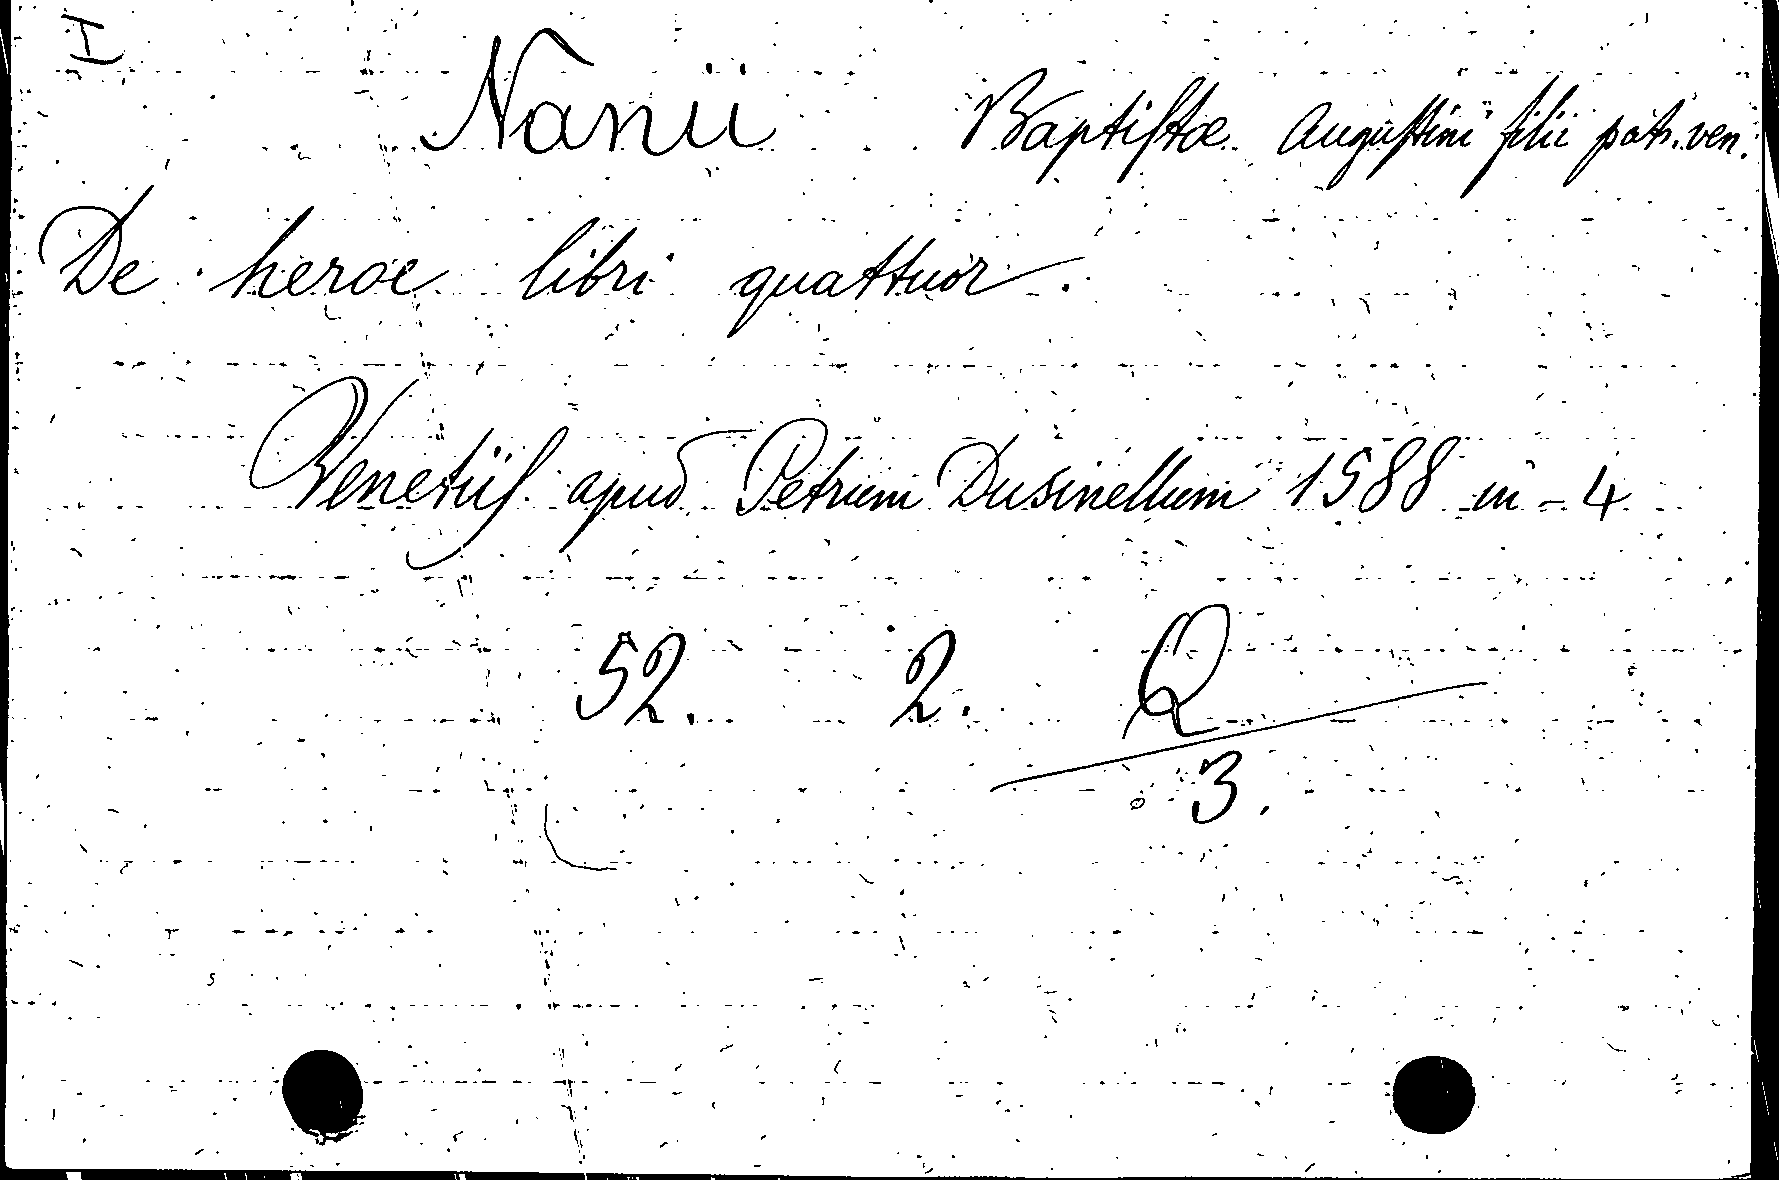 I
Nanii Baptistæ Augustini filii patr. ven.
De heroe libri quattuor.
Venetiis apud Petrum Dusinellum 1588 in-4
52. 2. Q
3.